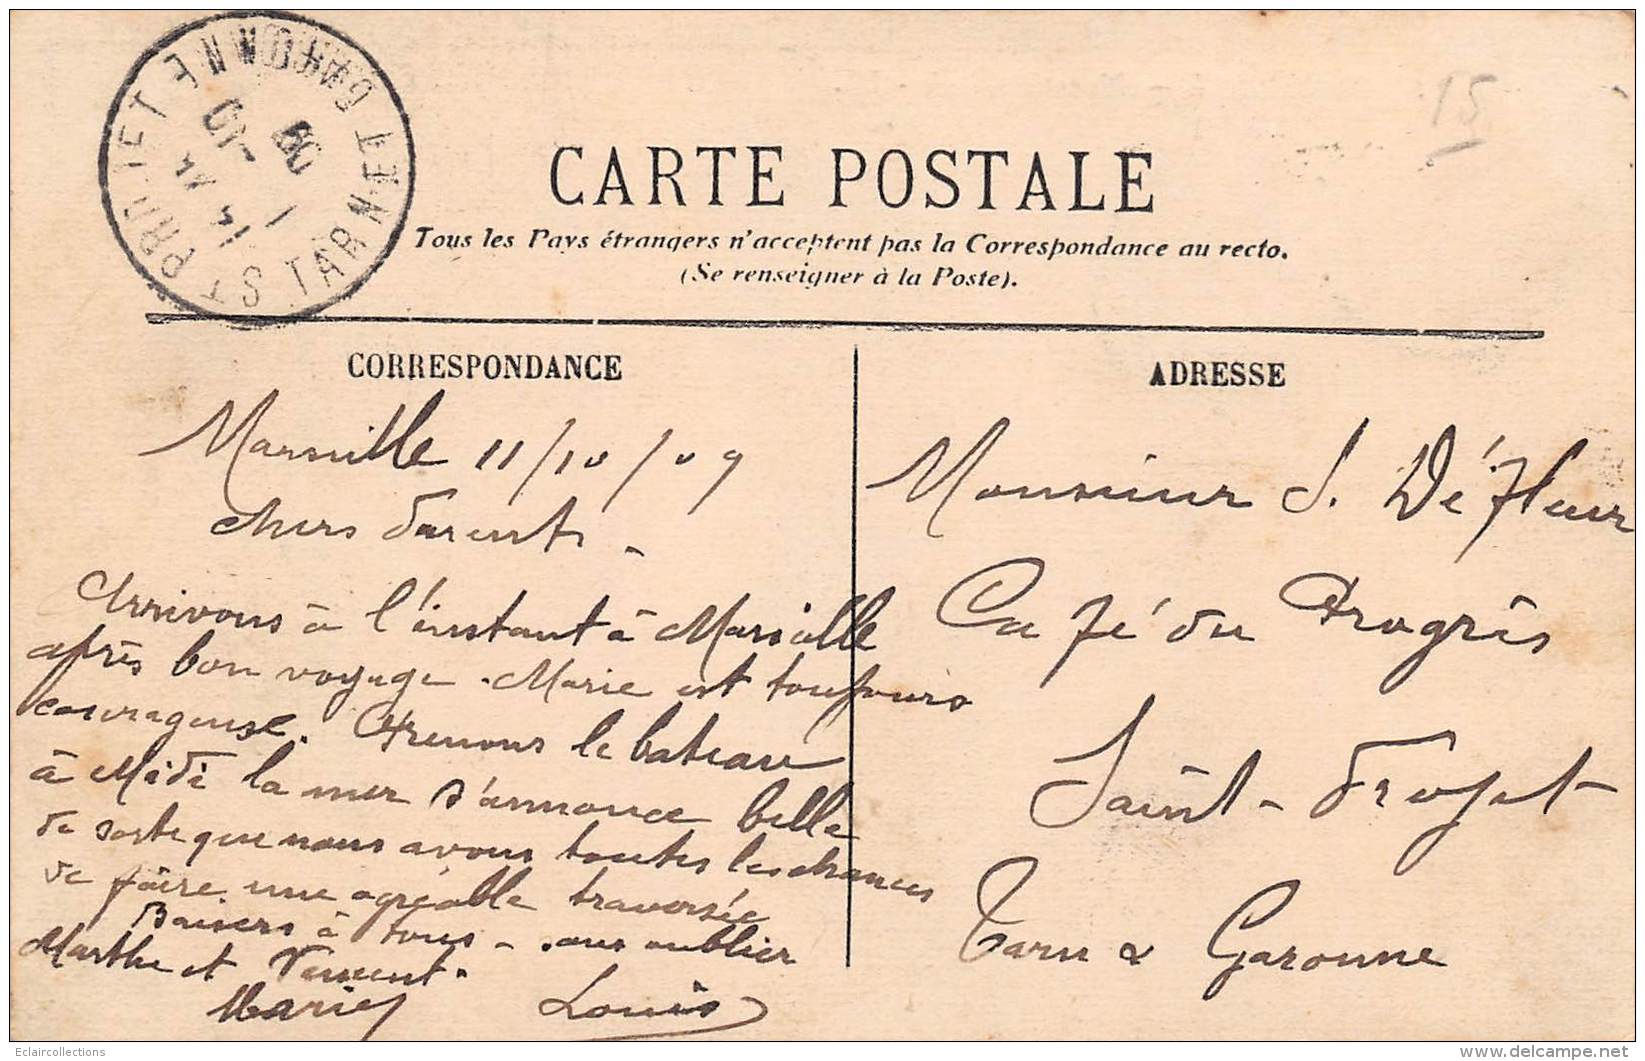 15
CARTE POSTALE
Tous les Pays étrangers n'acceptent pas la Correspondance au recto.
(Se renseigner à la Poste).
ST PROJET
TARN ET GARONNE
CORRESPONDANCE
Marseille 11/10/09
Chers Parents -
Arrivons à l'instant à Marseille
après bon voyage. Marie est toujours
courageuse. Prenons le bateau
à Midi la mer s'annonce belle
de sorte que nous avons toutes les chances
de faire une agréable traversée
Baisers à tous - sans oublier
Marthe et Vincent.
Marie Louis
ADRESSE
Monsieur J. Déjean
Café du Progrès
Saint-Projet
Tarn & Garonne
Eclaircollections
www.delcampe.net